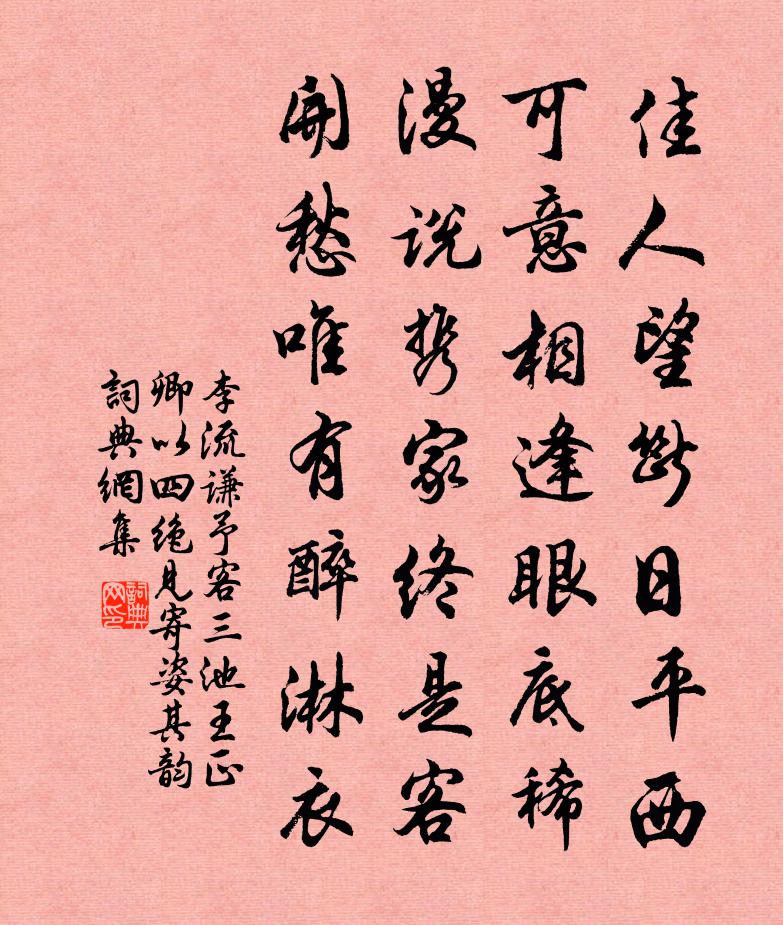 佳人望断日平西
可意相逢眼底稀
漫说携家终是客
開愁唯有醉淋衣
李流谦予客三池王正
卿以四绝見寄姿其韵
詞典網集
詞典网印